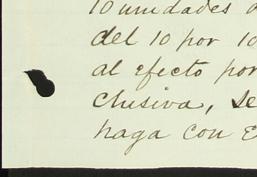 10 unidades
del 10 por 10
al efecto por
clusiva, se
haga con